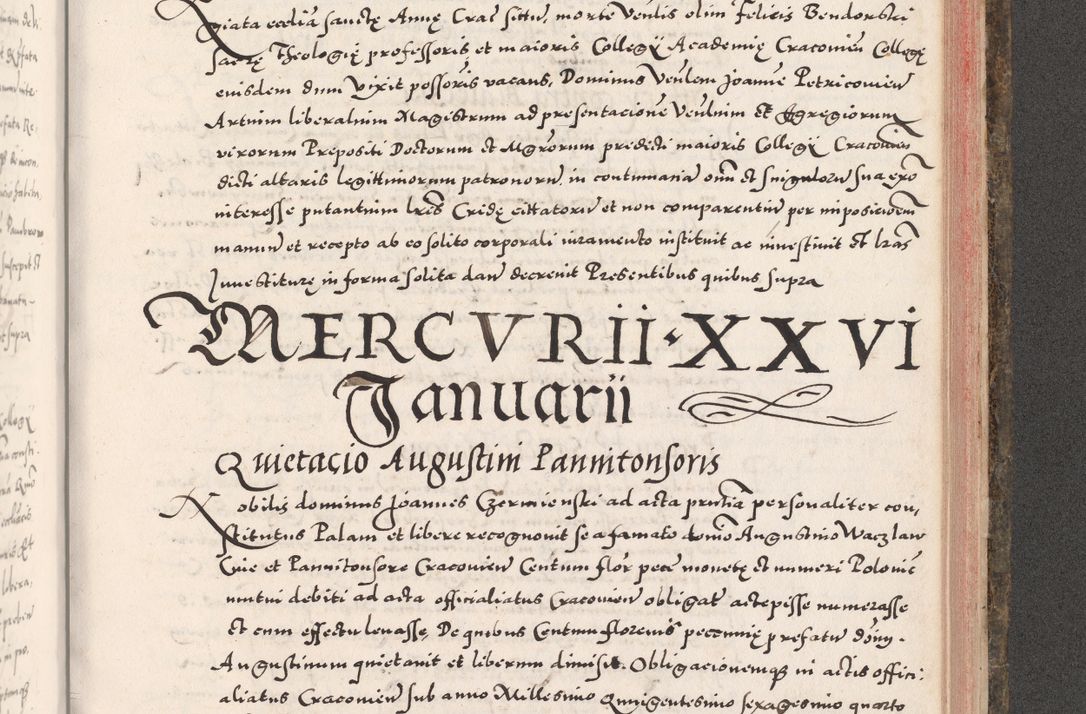 giata ecclia sanctę Annę Crac sittu, morte Venlis olim Felicis Bendorski
sacrę Theologię professoris et maioris Collegÿ Academię Cracovien Collegę
eiusdem dum vixit possoris vacans, Dominus Venlem Joanne Petricovien
Artium liberalium Magistrum ad presentacione Venlium et Egregiorum
virorum Prepositi Doctorum et Mgrorum predicti maioris Collegÿ Cracovien
dicti altaris legittimorum patronorum in contumacia omni et singulorum sua expo
interesse putantium lres Cridę cittatorum et non comparentium per imposicioem
manum et recepto ab eo solito corporali iuramento instituit ac investivit Et lras
Investiturę in forma solita dan decrevit Presentibus quibus supra
MERCVRII · XXVI
Januarii
Quietacio Augustini Pannitonsoris
Nobilis dominus Joannes Czermienski ad acta prntia personaliter con,
stitutus Palam et libere recognovit se a famato domo Augustino Waczlaw
Cive et Pannitonsore Cracovien Centum flor pece monetę et numeri Polonic
mutui debiti ad acta officialiatus Cracovien obligat accepisse numerasse
et cum effectu levasse, De quibus Centum florenis peccunię prefatum domi
Augustinum quietavit et liberum dimisit. Obligacionemque in actis offici:
aliatus Cracovien sub anno Millesimo Quingentesimo sexagesimo quarto